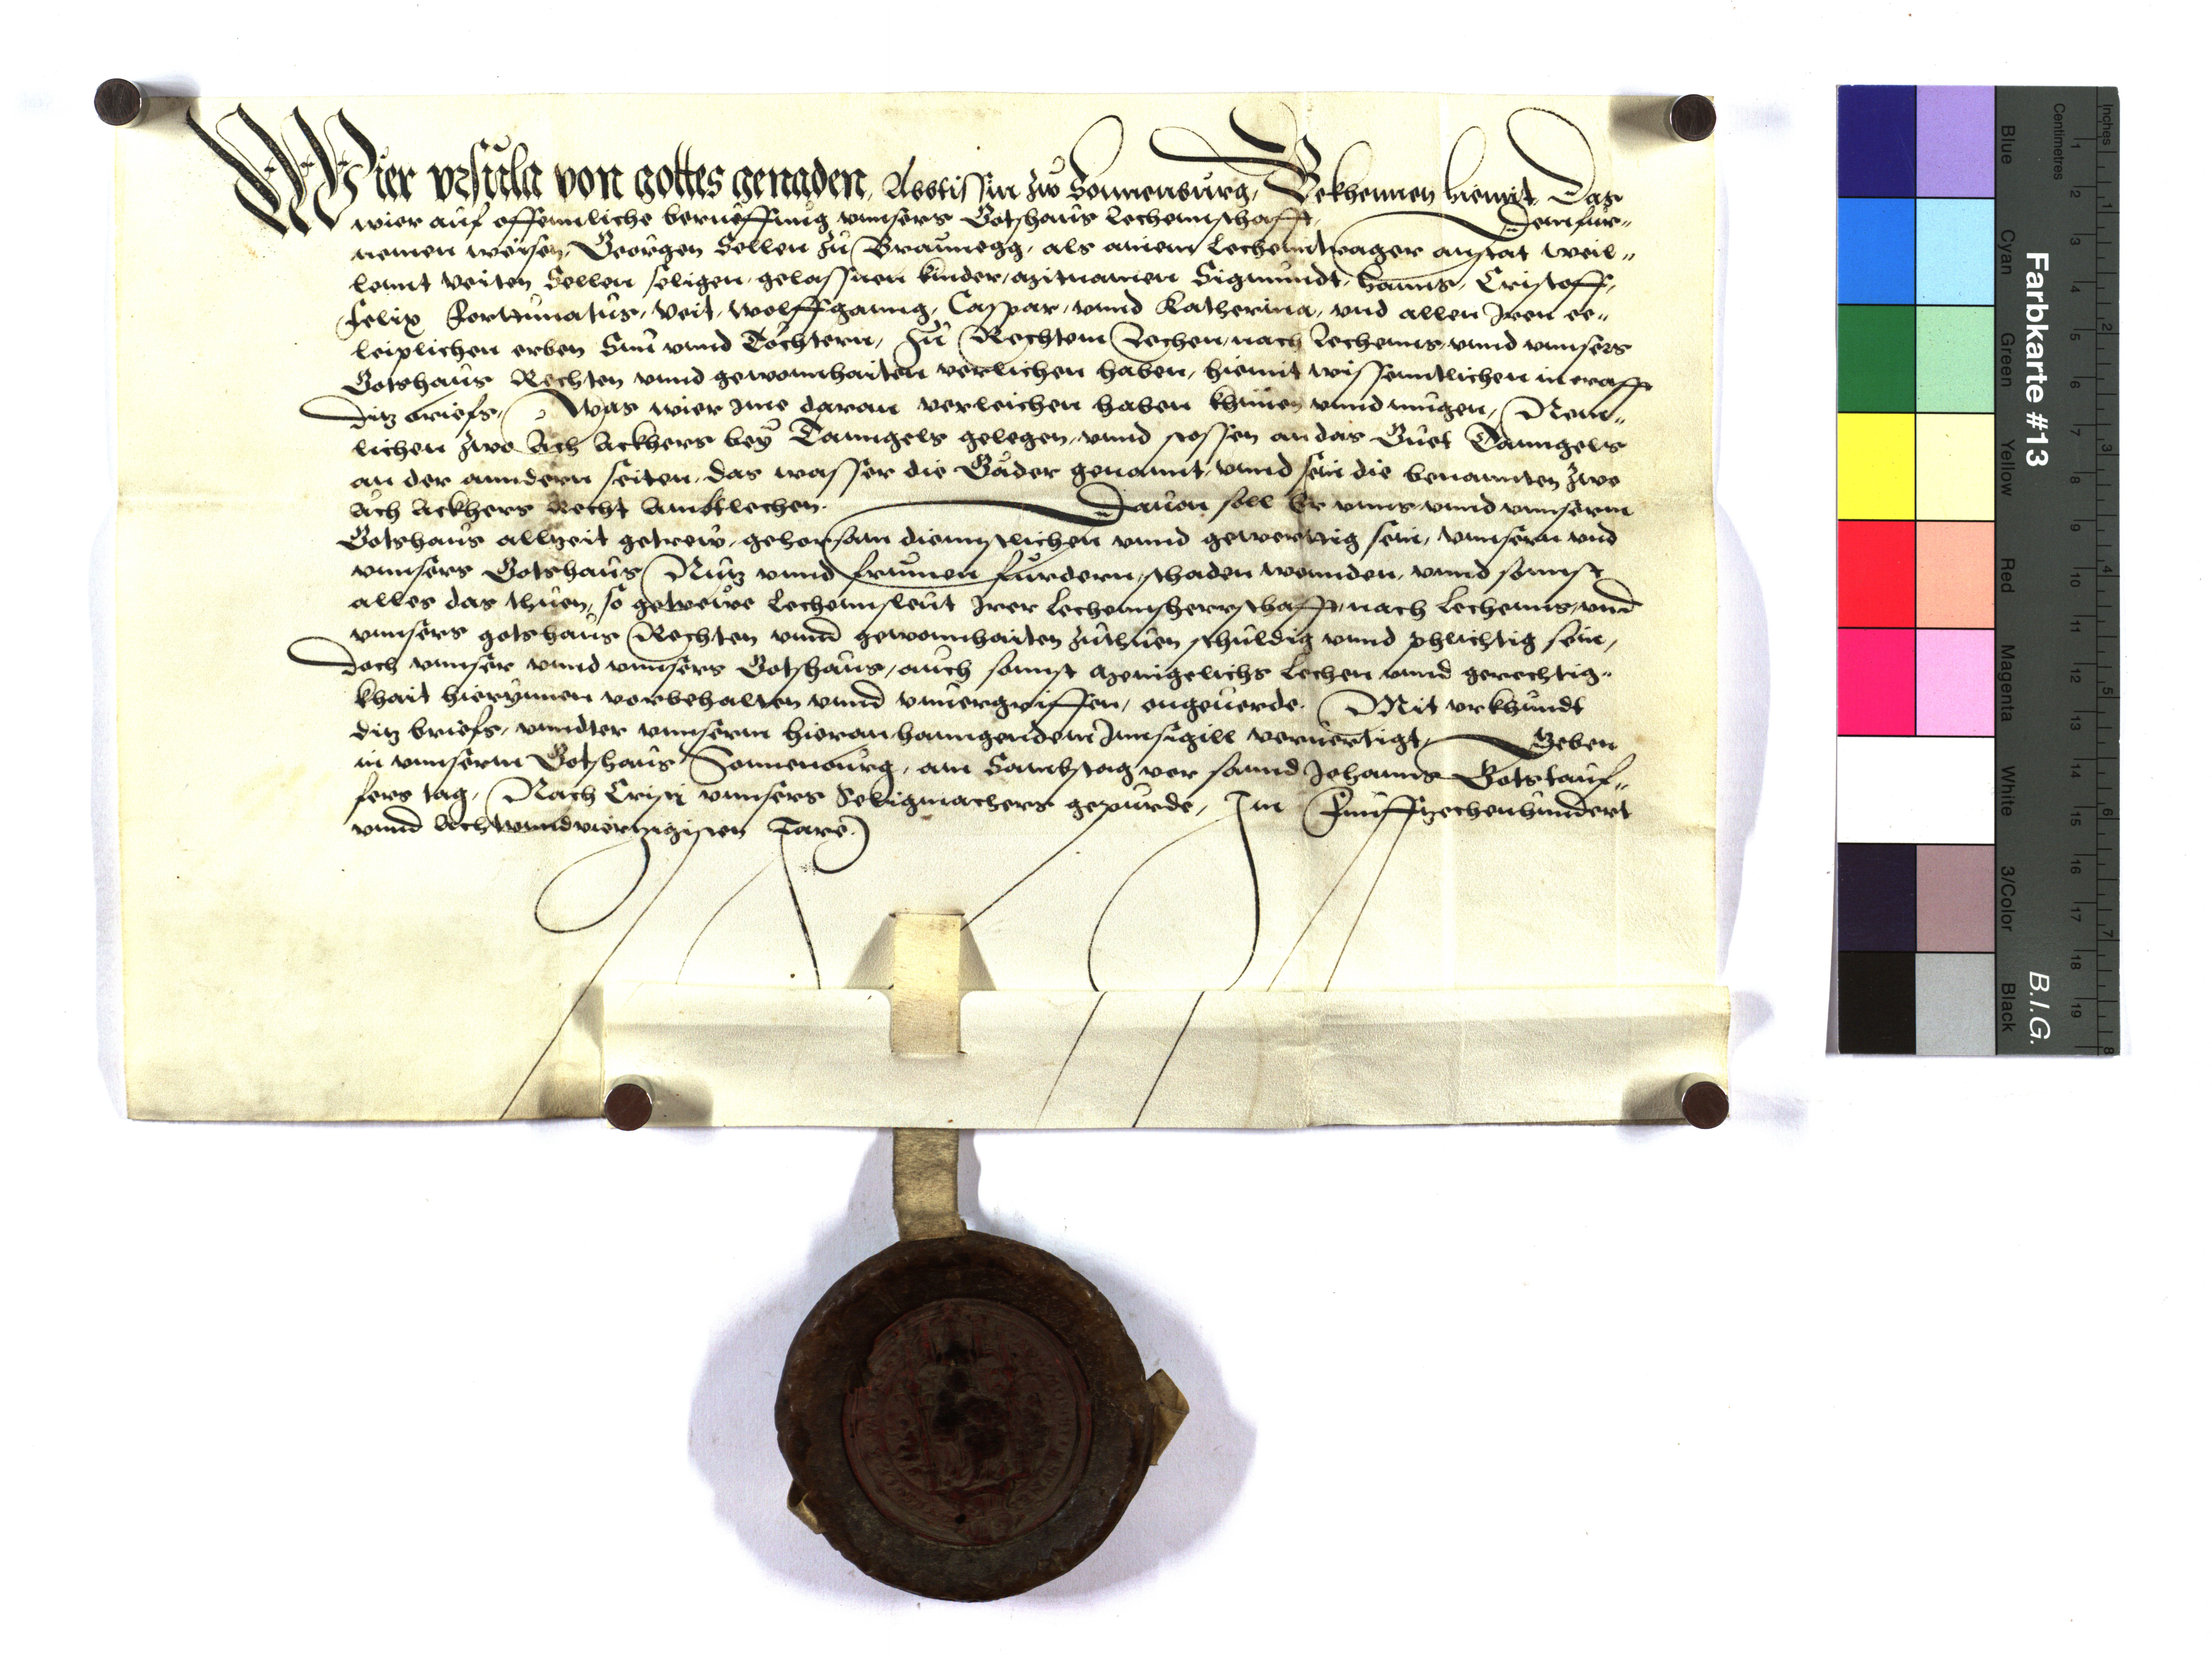 Wier vrsula von gottes genaden, Abbtissin zw Sonnenburg, Bekhennen hiemit, Das
wier auf offennliche berueffung vnnsers Gotshaus lechennschafft, Dem fur„
nemen weysen, Georgen Sellen zu Braunegg, als ainem lechenntrager anstat weil„
lennt Veiten Sellen seligen, gelassnen kinder, mitnamen Sigmundt, Hanns, Cristoff,
Felix Fortunatus, Veit, Wolffganng, Caspar, vnnd Katherina, vnd allen Iren ee„
leiplichen erben Sun vnnd Töchtern, Zu Rechtem Lechen, nach Lechenns, vnnd vnnsers
Gotshaus Rechten vnnd gewonnhaiten verlichen haben, hiemit wissenntlichen in crafft
ditz briefs, Was wier Ime daran verleichen haben khünen vnnd mugen, Nem„
lichen zwo Ach Ackhers bey Taungels gelegen, vnnd stossen an das Guet Taungels
an der anndern seiten, das wasser die Gäder genannt, vnnd sein die benannten zwo
Ach Ackhers Recht Ambtlechen. Dauon soll Er vnns vnnd vnnserm
Gotshaus allzeit getrew, gehorsam diennstlichen vnnd gewerttig sein, vnnsern vnd
vnnsers Gotshaus Nutz vnnd frumen furdern, schaden wennden, vnnd sonnst
alles das thuen, so getrewe Lechennsleut Irer Lechennsherrschafft, nach Lechenns, vnd
vnnsers gotshaus Rechten vnnd gewonnhaiten zuthuen schuldig vnnd phlichtig sein,
Doch vnnser vnnd vnnsers Gotshaus, auch sonnst menigelichs Lechen vnnd gerechtig„
khait hierynnen vorbehalten vnnd vnuergriffen, ongeuerde. Mit vrkhundt
ditz briefs, vnndter vnnserm hieran hanngendem Innsigill veruertigt, Geben
in vnnserm Gotshaus Sonnenburg, am Sambstag vor sannd Johanns Gotstauf„
fers tag, Nach Cristi vnnsers Seligmachers gepurde, Im Funffzechenhundert
vnnd Achtvnndvierzigisten Jare.
Farbkarte #13
B.I.G.
Inches
Centimetres
Blue
Cyan
Green
Yellow
Red
Magenta
White
3/Color
Black
1 2 3 4 5 6 7 8 9 10 11 12 13 14 15 16 17 18 19
1 2 3 4 5 6 7 8